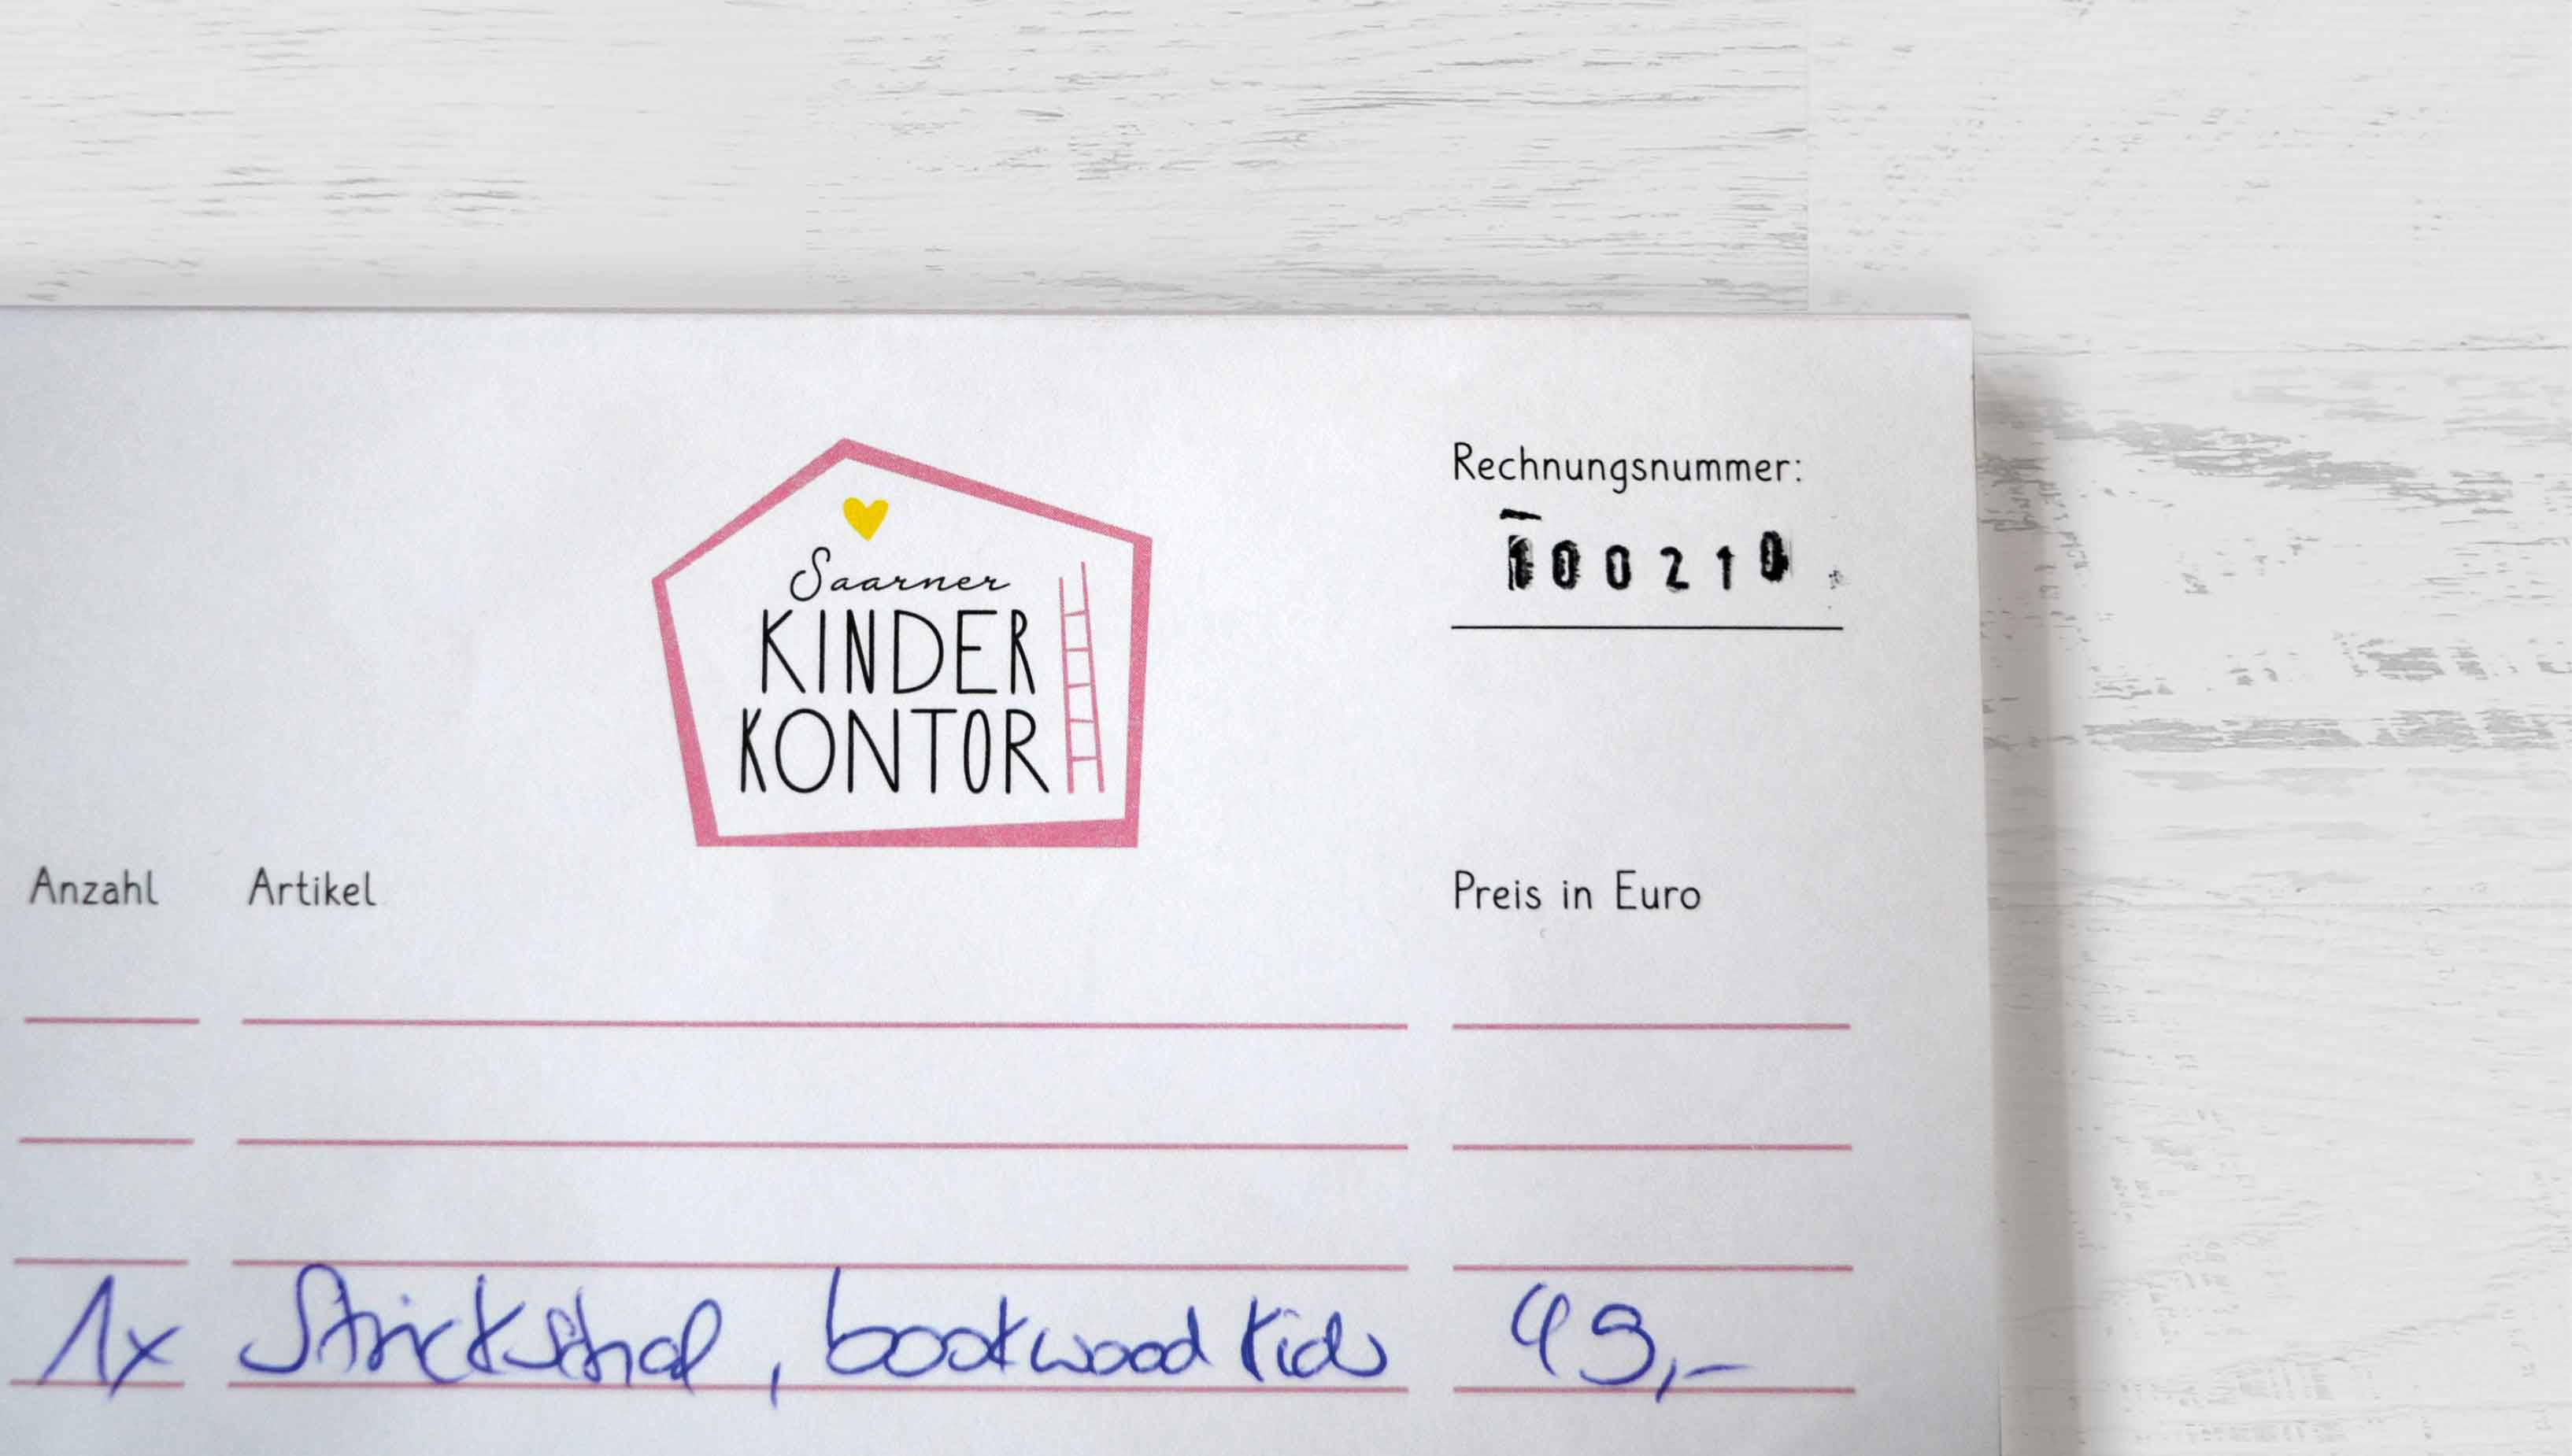 Saarner
KINDER
KONTOR
Rechnungsnummer:
100210
Anzahl Artikel Preis in Euro
1x Strickschal, bookwood kids 49,-